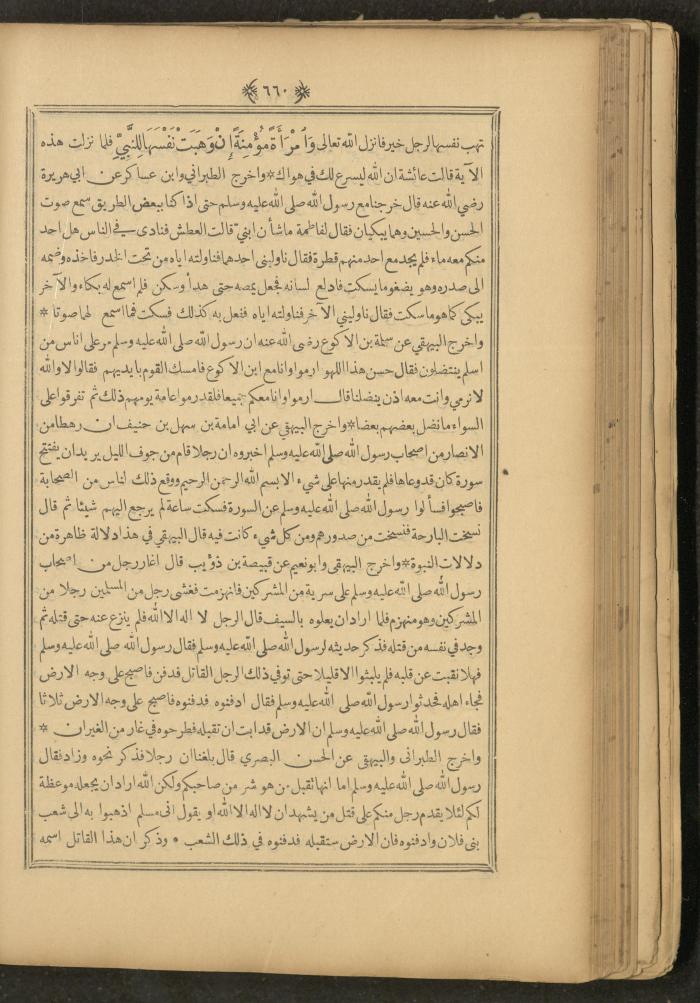 ٦٦٠
تهب نفسها لرجل خير فانزل الله تعالى وَٱمْرَأَةً مُؤْمِنَةً إِنْ وَهَبَتْ نَفْسَهَا لِلنَّبِيِّ فلما نزلت هذه
الآية قالت عائشة ان الله ليسرع لك في هواك * واخرج الطبراني وابن عساكر عن ابي هريرة
رضي الله عنه قال خرجنا مع رسول الله صلى الله عليه وسلم حتى اذا كنا ببعض الطريق سمع صوت
الحسن والحسين وهما يبكيان فقال لفاطمة ما شأن ابني قالت العطش فنادى في الناس هل احد
منكم معه ماء فلم يجد مع احد منهم قطرة فقال ناوليني احدهما فناولته اياه من تحت الخدر فاخذه وضمه
الى صدره وهو يضغو ما يسكت فادلع لسانه فجعل يمصه حتى هدأ وسكن فلم اسمع له بكاء والآخر
يبكى كما هو ما سكت فقال ناوليني الآخر فناولته اياه ففعل به كذلك فسكت فما اسمع لهما صوتا *
واخرج البيهقي عن سلمة بن الاكوع رضى الله عنه ان رسول الله صلى الله عليه وسلم مر على اناس من
اسلم ينتضلون فقال حسن هذا اللهو ارموا وانا مع ابن الاكوع فامسك القوم بايديهم فقالوا لا والله
لا نرمي وانت معه اذن ينضلنا قال ارموا وانا معكم جميعا فلقد رموا عامة يومهم ذلك ثم تفرقوا على
السواء ما نضل بعضهم بعضا * واخرج البيهقي عن ابي امامة بن سهل بن حنيف ان رهطا من
الانصار من اصحاب رسول الله صلى الله عليه وسلم اخبروه ان رجلا قام من جوف الليل يريد ان يفتتح
سورة كان قد وعاها فلم يقدر منها على شيء الا بسم الله الرحمن الرحيم ووقع ذلك لناس من الصحابة
فاصبحوا فسألوا رسول الله صلى الله عليه وسلم عن السورة فسكت ساعة لم يرجع اليهم شيئا ثم قال
نسخت البارحة فنسخت من صدورهم ومن كل شيء كانت فيه قال البيهقي في هذا دلالة ظاهرة من
دلالات النبوة * واخرج البيهقي وابو نعيم عن قبيصة بن ذؤيب قال اغار رجل من اصحاب
رسول الله صلى الله عليه وسلم على سرية من المشركين فانهزمت فغشى رجل من المسلمين رجلا من
المشركين وهو منهزم فلما اراد ان يعلوه بالسيف قال الرجل لا اله الا الله فلم ينزع عنه حتى قتله ثم
وجد في نفسه من قتله فذكر حديثه لرسول الله صلى الله عليه وسلم فقال رسول الله صلى الله عليه وسلم
فهلا نقبت عن قلبه فلم يلبثوا الا قليلا حتى توفي ذلك الرجل القاتل فدفن فاصبح على وجه الارض
فجاء اهله فحدثوا رسول الله صلى الله عليه وسلم فقال ادفنوه فدفنوه فاصبح على وجه الارض ثلاثا
فقال رسول الله صلى الله عليه وسلم ان الارض قد ابت ان تقبله فطرحوه في غار من الغيران *
واخرج الطبرانى والبيهقى عن الحسن البصري قال بلغنا ان رجلا فذكر نحوه وزاد فقال
رسول الله صلى الله عليه وسلم اما انها تقبل من هو شر من صاحبكم ولكن الله اراد ان يجعله موعظة
لكم لئلا يقدم رجل منكم على قتل من يشهد ان لا اله الا الله او يقول انى مسلم اذهبوا به الى شعب
بنى فلان وادفنوه فان الارض ستقبله فدفنوه في ذلك الشعب * وذكر ان هذا القاتل اسمه